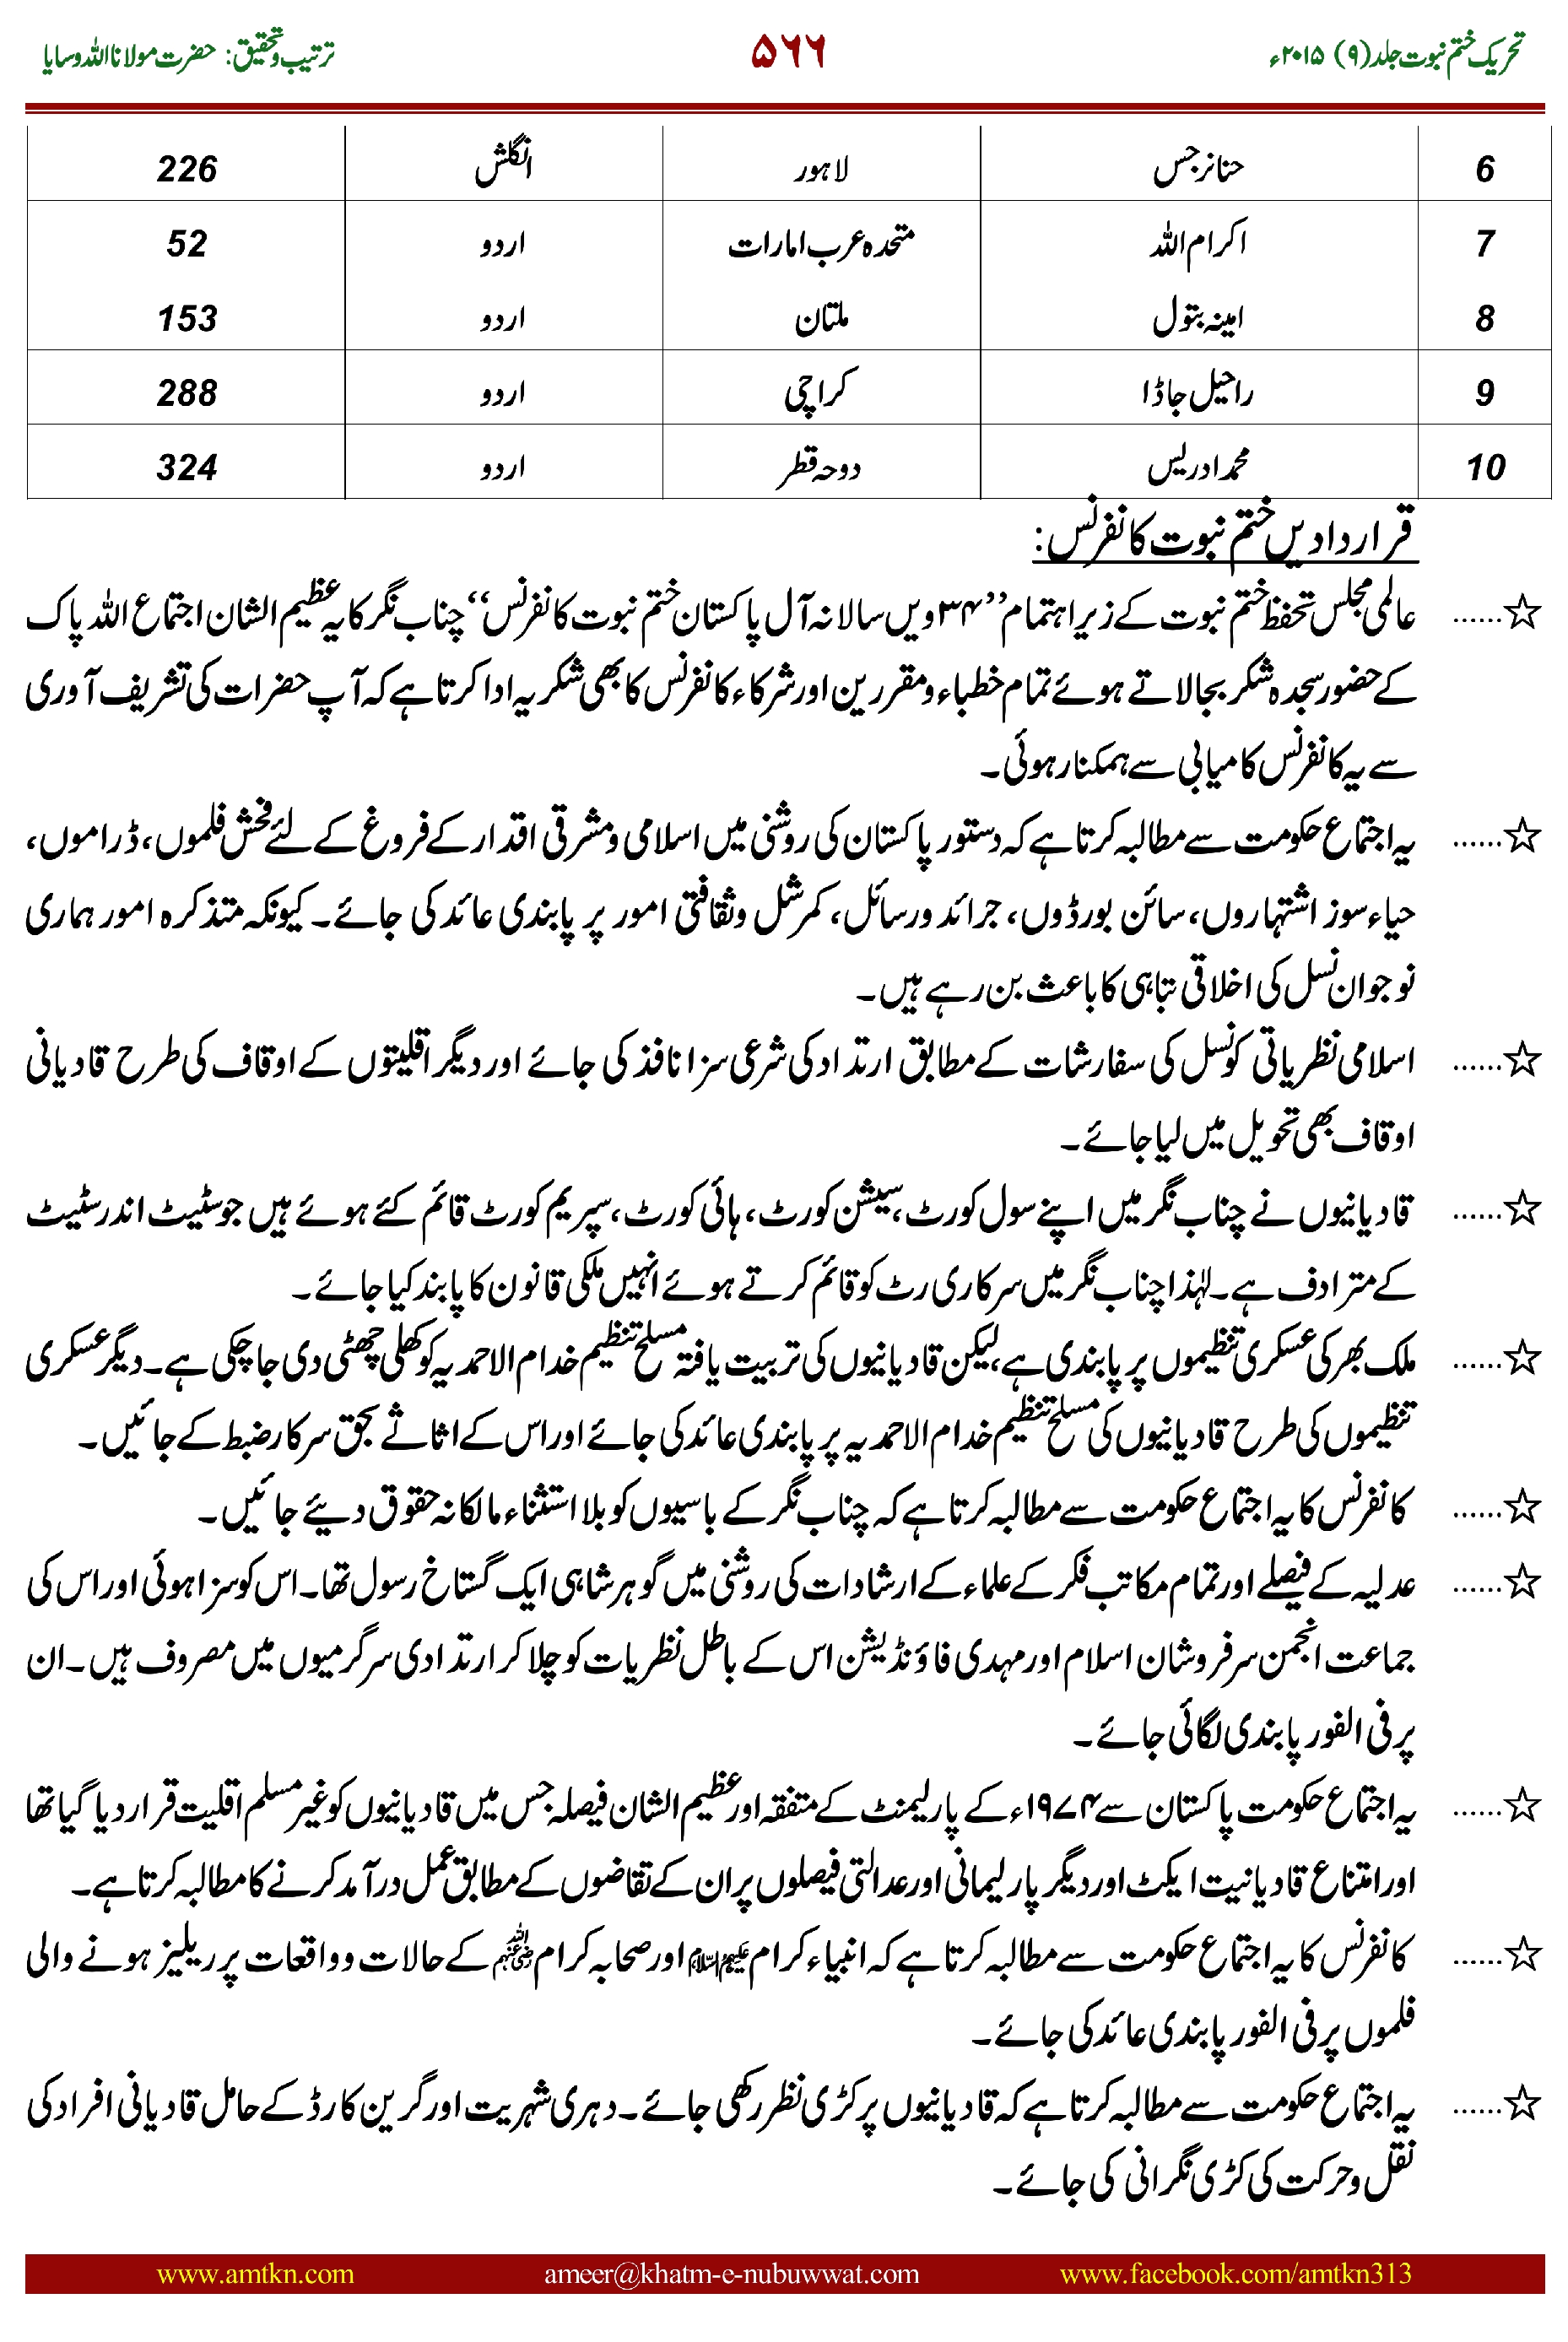 تحریک ختم نبوت جلد (۹) ۲۰۱۵ء ۵۶۶ ترتیب و تحقیق: حضرت مولانا اللہ وسایا
6 حنا نرجس لاہور انگلش 226
7 اکرام اللہ متحدہ عرب امارات اردو 52
8 امینہ بتول ملتان اردو 153
9 راحیل جاڈا کراچی اردو 288
10 محمد ادریس دوحہ قطر اردو 324
قراردادیں ختم نبوت کانفرنس:
☆...... عالمی مجلس تحفظ ختم نبوت کے زیر اہتمام ’’۳۴ویں سالانہ آل پاکستان ختم نبوت کانفرنس‘‘ چناب نگر کا یہ عظیم الشان اجتماع اللہ پاک
کے حضور سجدہ شکر بجا لاتے ہوئے تمام خطباء و مقررین اور شرکاء کانفرنس کا بھی شکریہ ادا کرتا ہے کہ آپ حضرات کی تشریف آوری
سے یہ کانفرنس کامیابی سے ہمکنار ہوئی۔
☆...... یہ اجتماع حکومت سے مطالبہ کرتا ہے کہ دستور پاکستان کی روشنی میں اسلامی و مشرقی اقدار کے فروغ کے لئے فحش فلموں، ڈراموں،
حیاء سوز اشتہاروں، سائن بورڈوں، جرائد ورسائل، کمرشل وثقافتی امور پر پابندی عائد کی جائے۔ کیونکہ متذکرہ امور ہماری
نوجوان نسل کی اخلاقی تباہی کا باعث بن رہے ہیں۔
☆...... اسلامی نظریاتی کونسل کی سفارشات کے مطابق ارتداد کی شرعی سزا نافذ کی جائے اور دیگر اقلیتوں کے اوقاف کی طرح قادیانی
اوقاف بھی تحویل میں لیا جائے۔
☆...... قادیانیوں نے چناب نگر میں اپنے سول کورٹ، سیشن کورٹ، ہائی کورٹ، سپریم کورٹ قائم کئے ہوئے ہیں جو سٹیٹ اندر سٹیٹ
کے مترادف ہے۔ لہٰذا چناب نگر میں سرکاری رٹ کو قائم کرتے ہوئے انہیں ملکی قانون کا پابند کیا جائے۔
☆...... ملک بھر کی عسکری تنظیموں پر پابندی ہے، لیکن قادیانیوں کی تربیت یافتہ مسلح تنظیم خدام الاحمدیہ کو کھلی چھٹی دی جا چکی ہے۔ دیگر عسکری
تنظیموں کی طرح قادیانیوں کی مسلح تنظیم خدام الاحمدیہ پر پابندی عائد کی جائے اور اس کے اثاثے بحق سرکار ضبط کے جائیں۔
☆...... کانفرنس کا یہ اجتماع حکومت سے مطالبہ کرتا ہے کہ چناب نگر کے باسیوں کو بلا استثناء مالکانہ حقوق دیئے جائیں۔
☆...... عدلیہ کے فیصلے اور تمام مکاتب فکر کے علماء کے ارشادات کی روشنی میں گوہر شاہی ایک گستاخ رسول تھا۔ اس کو سزا ہوئی اور اس کی
جماعت انجمن سرفروشان اسلام اور مہدی فاؤنڈیشن اس کے باطل نظریات کو چلا کر ارتدادی سرگرمیوں میں مصروف ہیں۔ ان
پر فی الفور پابندی لگائی جائے۔
☆...... یہ اجتماع حکومت پاکستان سے ۱۹۷۴ء کے پارلیمنٹ کے متفقہ اور عظیم الشان فیصلہ جس میں قادیانیوں کو غیر مسلم اقلیت قرار دیا گیا تھا
اور امتناع قادیانیت ایکٹ اور دیگر پارلیمانی اور عدالتی فیصلوں پر ان کے تقاضوں کے مطابق عمل درآمد کرنے کا مطالبہ کرتا ہے۔
☆...... کانفرنس کا یہ اجتماع حکومت سے مطالبہ کرتا ہے کہ انبیاء کرام علیہم السلام اور صحابہ کرام رضی اللہ عنہم کے حالات و واقعات پر ریلیز ہونے والی
فلموں پر فی الفور پابندی عائد کی جائے۔
☆...... یہ اجتماع حکومت سے مطالبہ کرتا ہے کہ قادیانیوں پر کڑی نظر رکھی جائے۔ دہری شہریت اور گرین کارڈ کے حامل قادیانی افراد کی
نقل و حرکت کی کڑی نگرانی کی جائے۔
www.amtkn.com ameer@khatm-e-nubuwwat.com www.facebook.com/amtkn313